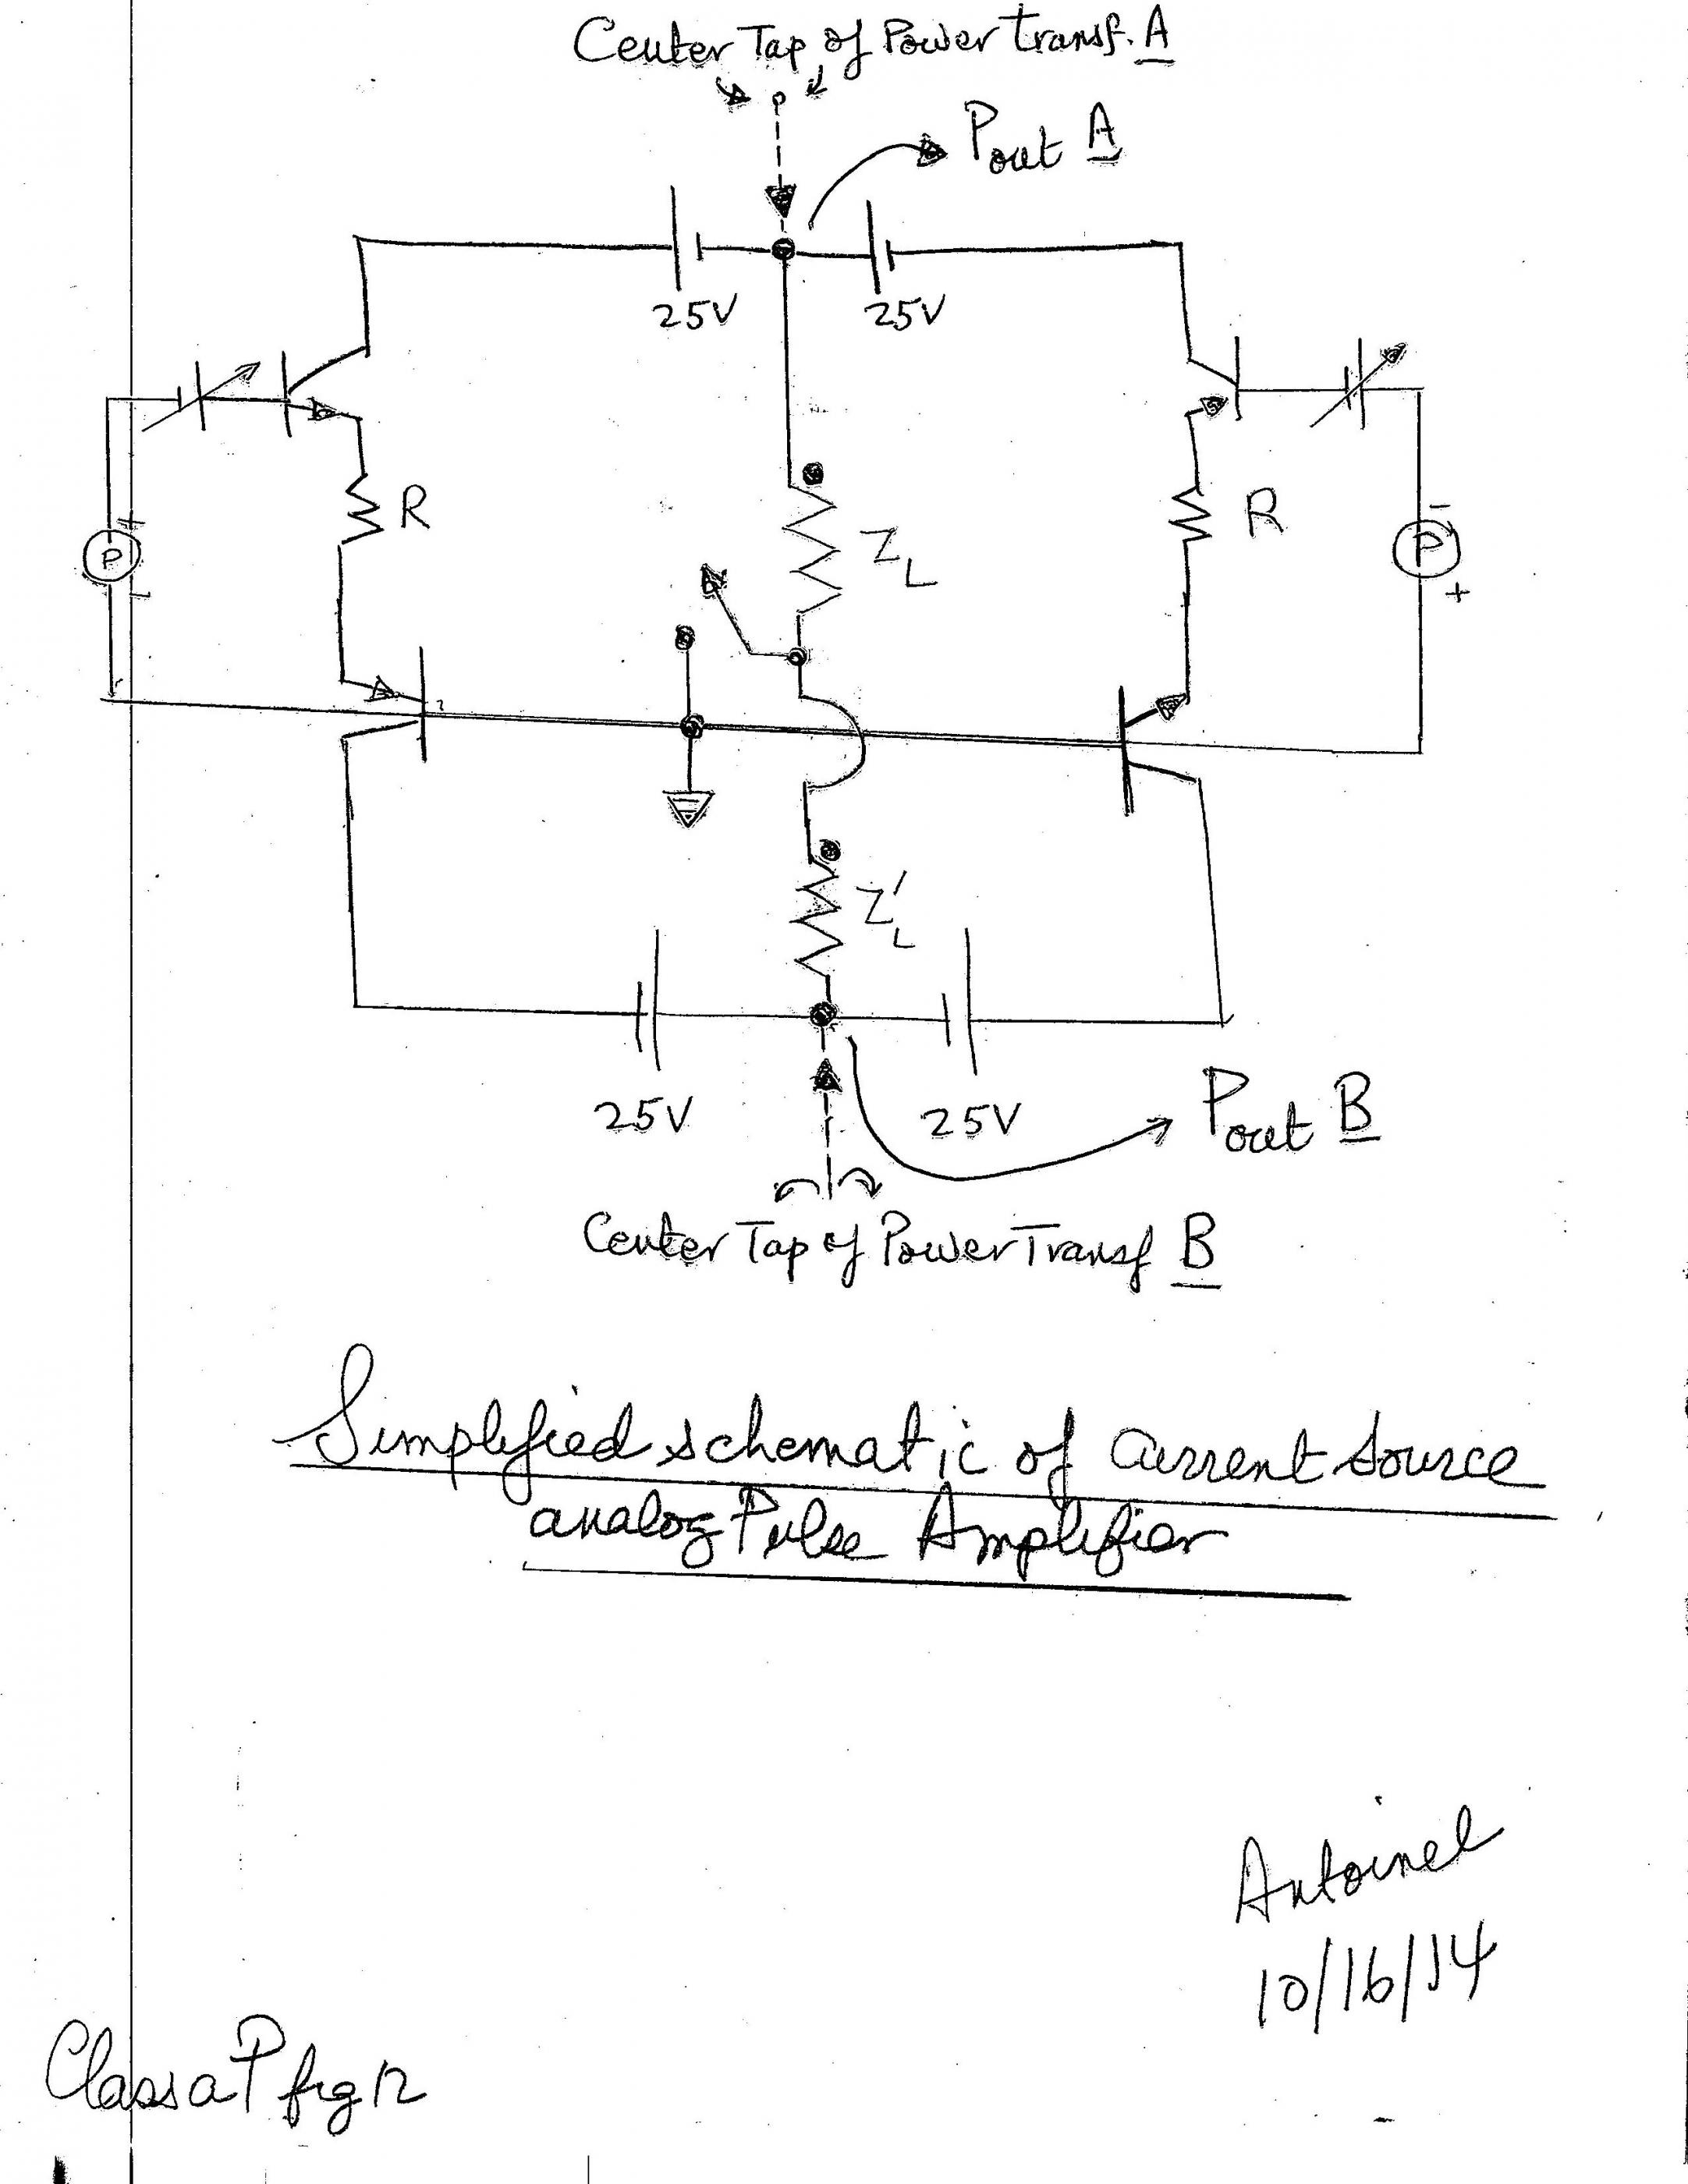 Center Tap of Power transf. A
Pout A
25V
25V
R
R
ZL
P
+
-
P
-
+
Z'L
25V
25V
Pout B
Center Tap of Power Transf B
Simplified schematic of current source
analog Pulse Amplifier
Antoinel
10/16/14
Class aP fig 12